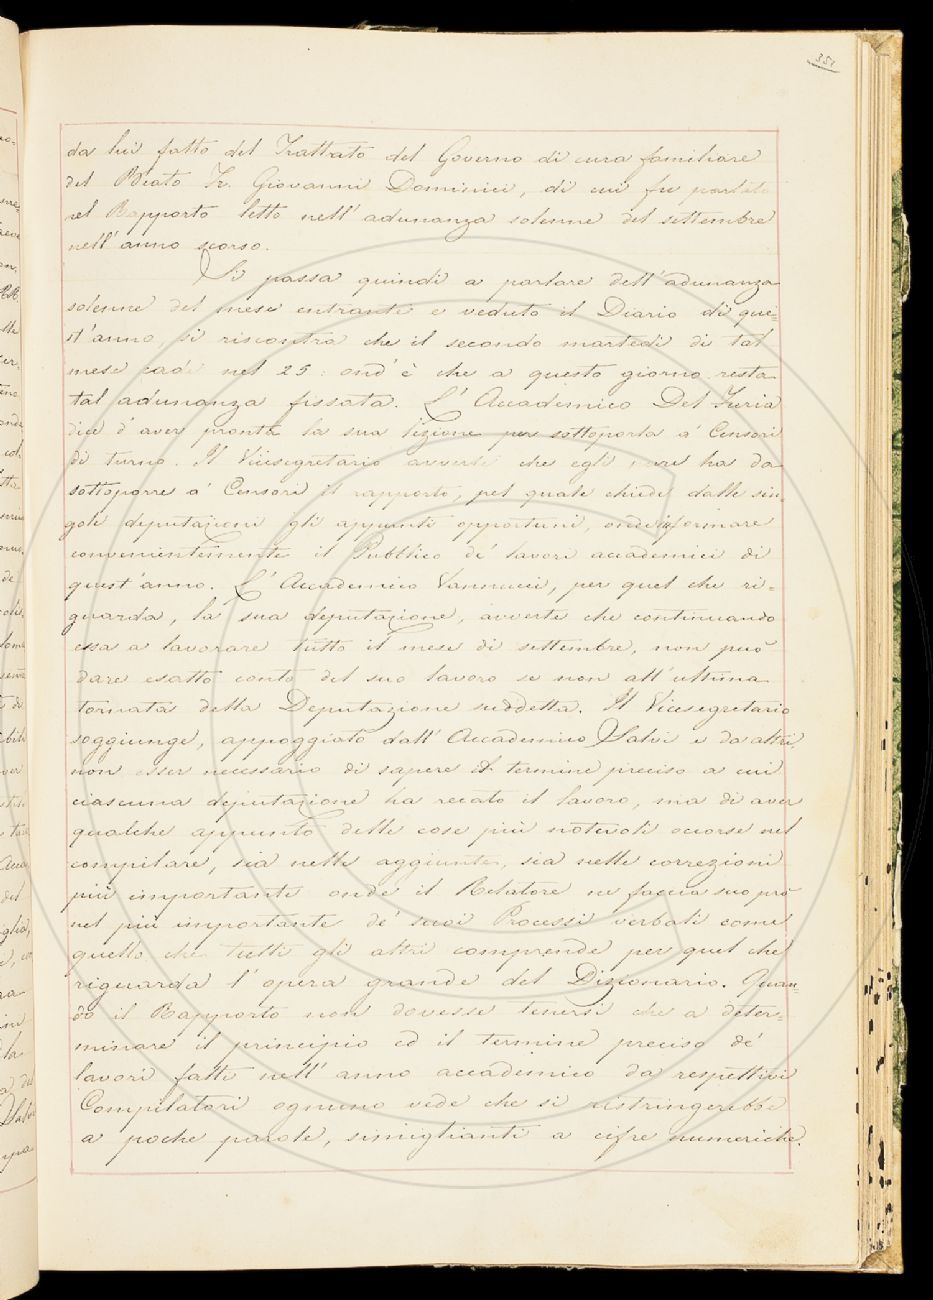 351
da lui fatto del Trattato del Governo di cura familiare
del Beato Fr. Giovanni Dominici, di cui fu parlato
nel Rapporto letto nell'adunanza solenne del settembre
nell'anno scorso.
Si passa quindi a parlare dell'adunanza
solenne del mese entrante e veduto il Diario di que=
st'anno, si riscontra che il secondo martedì di tal
mese cade nel 25: ond'è che a questo giorno resta
tal adunanza fissata. L'Accademico Del Furia
dice d'aver pronta la sua lezione per sottoporla a' Censori
di turno. Il Vicesegretario avverte che egli pure ha da
sottoporre a' Censori il rapporto, pel quale chiede dalle sin=
gole deputazioni gli appunti opportuni, onde informare
convenientemente il Pubblico de' lavori accademici di
quest'anno. L'Accademico Vannucci, per quel che ri=
guarda, la sua deputazione, avverte che continuando
essa a lavorare tutto il mese di settembre, non può
dare esatto conto del suo lavoro se non all'ultima
tornata della Deputazione suddetta. Il Vicesegretario
soggiunge, appoggiato dall'Accademico Salvi e da altri,
non esser necessario di sapere il termine preciso a cui
ciascuna deputazione ha recato il lavoro, ma di aver
qualche appunto delle cose più notevoli occorse nel
compilare, sia nelle aggiunte, sia nelle correzioni
più importanti onde il Relatore ne faccia suo prò
nel più importante de' suoi Processi verbali come
quello che tutti gli altri comprende per quel che
riguarda l'opera grande del Dizionario. Quan=
do il Rapporto non dovesse tenersi che a deter=
minare il principio ed il termine preciso de'
lavori fatti nell'anno accademico da respettivi
Compilatori ognuno vede che si ristringerebbe
a poche parole, simiglianti a cifre numeriche.